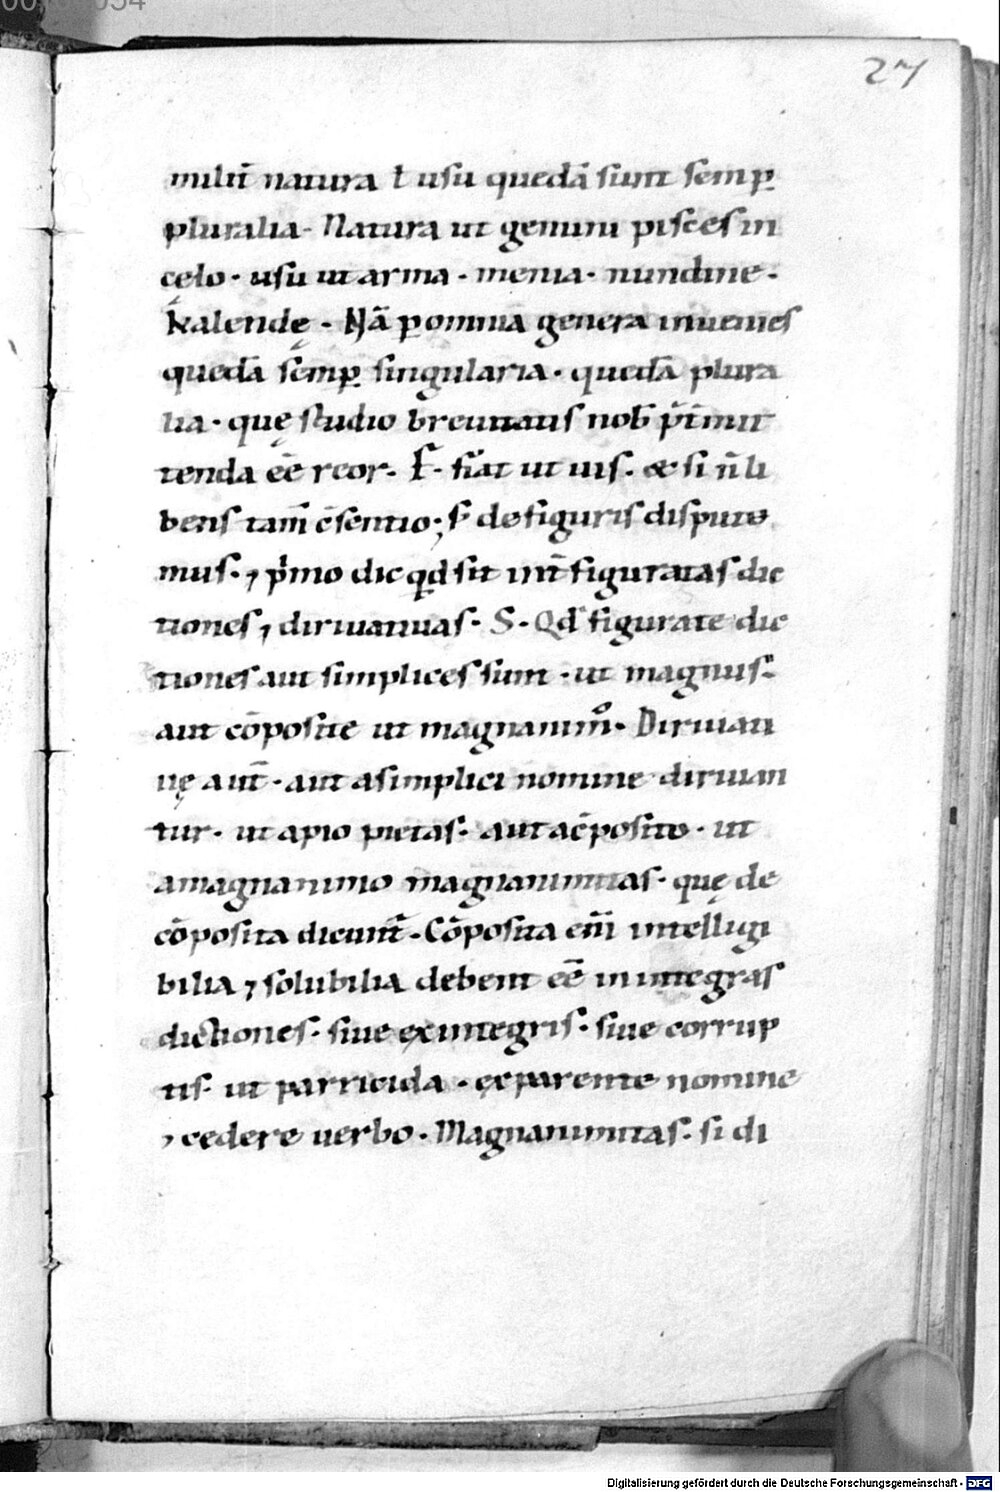 27
milit̄ natura ł usu quedā sunt semp̲
pluralia · Natura ut gemini pisces in
celo · usu ut arma · menia · nundine ·
kalendę · Nā p̲ omnia genera inuenies
quedā semp̲ singularia · quedā plura
lia · quę studio breuitatis nob̄ p̄t̄mit
tenda eē reor · F · fiāt ut uis · & si n̄ li
bens tam̄ c̄sentio ; s̄ de figuris dispute
mus · ⁊ p̄mo dic qd̄ sit int̄ figuratas dic
tiones ⁊ diriuatiuas · S · Qd̄ figurate dic
tiones aut simplices sunt · ut magnus ·
aut cōposite ut magnanimꝰ · Diriuati
uę aut̄ · aut a simplici nomine diriuan
tur · ut a pio pietas · aut a c̄posito · ut
a magnanimo magnanimitas · quę de
cōposita dicunt̄ · Cōposita eni̅ intelligi
bilia ⁊ solubilia debent eē in integras
dictiones · siue ex integris · siue corrup
tis · ut parricida · ex parente nomine
⁊ cedere uerbo · Magnanimitas · si di
Digitalisierung gefördert durch die Deutsche Forschungsgemeinschaft - DFG